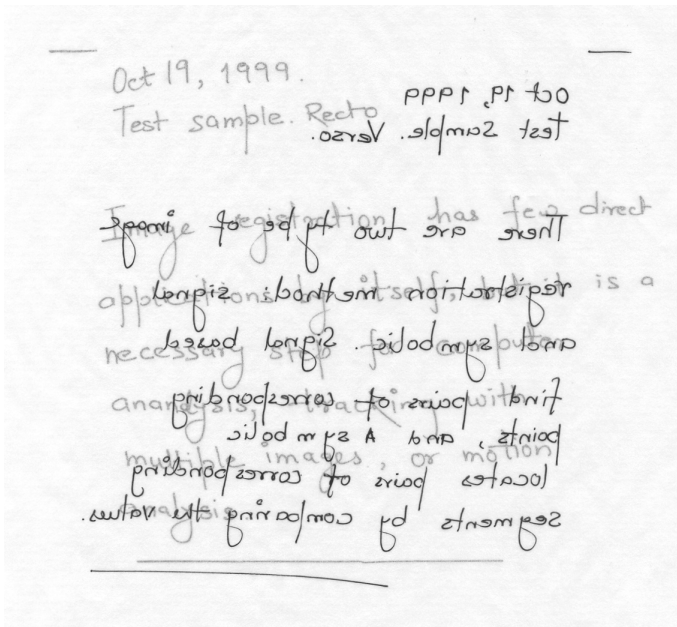 Oct 19, 1999.
Test sample. Recto
Image registration has few direct
applications by itself, but it is a
necessary step for computer
ananalysis, tracking with
multiple images, or motion
analysis
oct 19, 1999
Test Sample. Verso.
There are two type of image
registration method: signal
and symbolic. Signal based
find pairs of corresponding
points, and A symbolic
locates pairs of corresponding
segments by comparing the values.